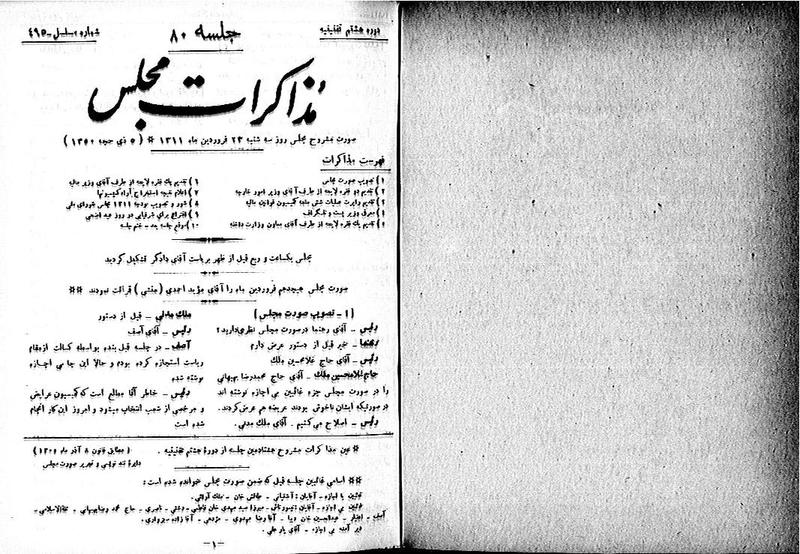 دوره هشتم تقنینیه
جلسه ۸۰
شماره مسلسل - ۴۹۵
مذاکرات مجلس
صورت مشروح مجلس روز سه شنبه ۲۳ فروردین ماه ۱۳۱۱ * (۵ ذی حجه ۱۳۵۰)
فهرست مذاکرات
۱) تصویب صورت مجلس
۲) تقدیم دو فقره لایحه از طرف آقای وزیر امور خارجه
۳) تقدیم راپرت عملیات شش ماهه کمیسیون قوانین مالیه
۴) معرفی وزیر پست و تلگراف
۵) تقدیم یک فقره لایحه از طرف آقای معاون وزارت داخله
۶) تقدیم یک فقره لایحه از طرف آقای وزیر مالیه
۷) اعلام نتیجه استخراج آراء کمیسیونها
۸) شور و تصویب بودجه ۱۳۱۱ مجلس شورای ملی
۹) اقتراع برای شرفیابی در روز عید اضحی
۱۰) موقع جلسه بعد - ختم جلسه
مجلس یکساعت و ربع قبل از ظهر بریاست آقای دادگر تشکیل گردید
صورت مجلس هیجدهم فروردین ماه را آقای مؤید احمدی (منشی) قرائت نمودند **
(۱ - تصویب صورت مجلس)
رئیس - آقای رهنما در صورت مجلس نظری دارید؟
رهنما - خیر قبل از دستور عرض دارم
رئیس - آقای حاج غلامحسین ملک
حاج غلامحسین ملک - آقای حاج محمدرضا بهبهانی
را در صورت مجلس جزء غائبین بی اجازه نوشته اند
در صورتیکه ایشان ناخوش بودند عریضه هم عرض کردند.
رئیس - اصلاح می کنیم. آقای ملک مدنی.
ملک مدنی - قبل از دستور
رئیس - آقای آصف
آصف - در جلسه قبل بنده بواسطه کسالت از مقام
ریاست استجازه کرده بودم و حالا این جا بی اجازه
نوشته شده
رئیس - خاطر آقا مطلع است که کمیسیون عرایض
و مرخصی از شعب انتخاب میشود و امروز این کار انجام
شده است
* عین مذاکرات مشروح هشتادمین جلسه از دورهٔ هشتم تقنینیه. (مطابق قانون ۸ آذر ماه ۱۳۰۵)
دایرهٔ تند نویسی و تحریر صورت مجلس
** اسامی غائبین جلسه قبل که ضمن صورت مجلس خوانده شده است:
غائبین با اجازه - آقایان: آشتیانی - طالش خان - ملک آرائی.
غائبین بی اجازه - آقایان: تیمورتاش - میرزا سید مهدی خان فاطمی - دشتی - ناصری - حاج محمد رضا بهبهانی - ثقةالاسلامی -
آصف - عبدالحسین خان دیبا - آقا رضا مهدوی - آقا زاده سبزواری.
دیر آمده بی اجازه - آقای یار علی.
-۱-